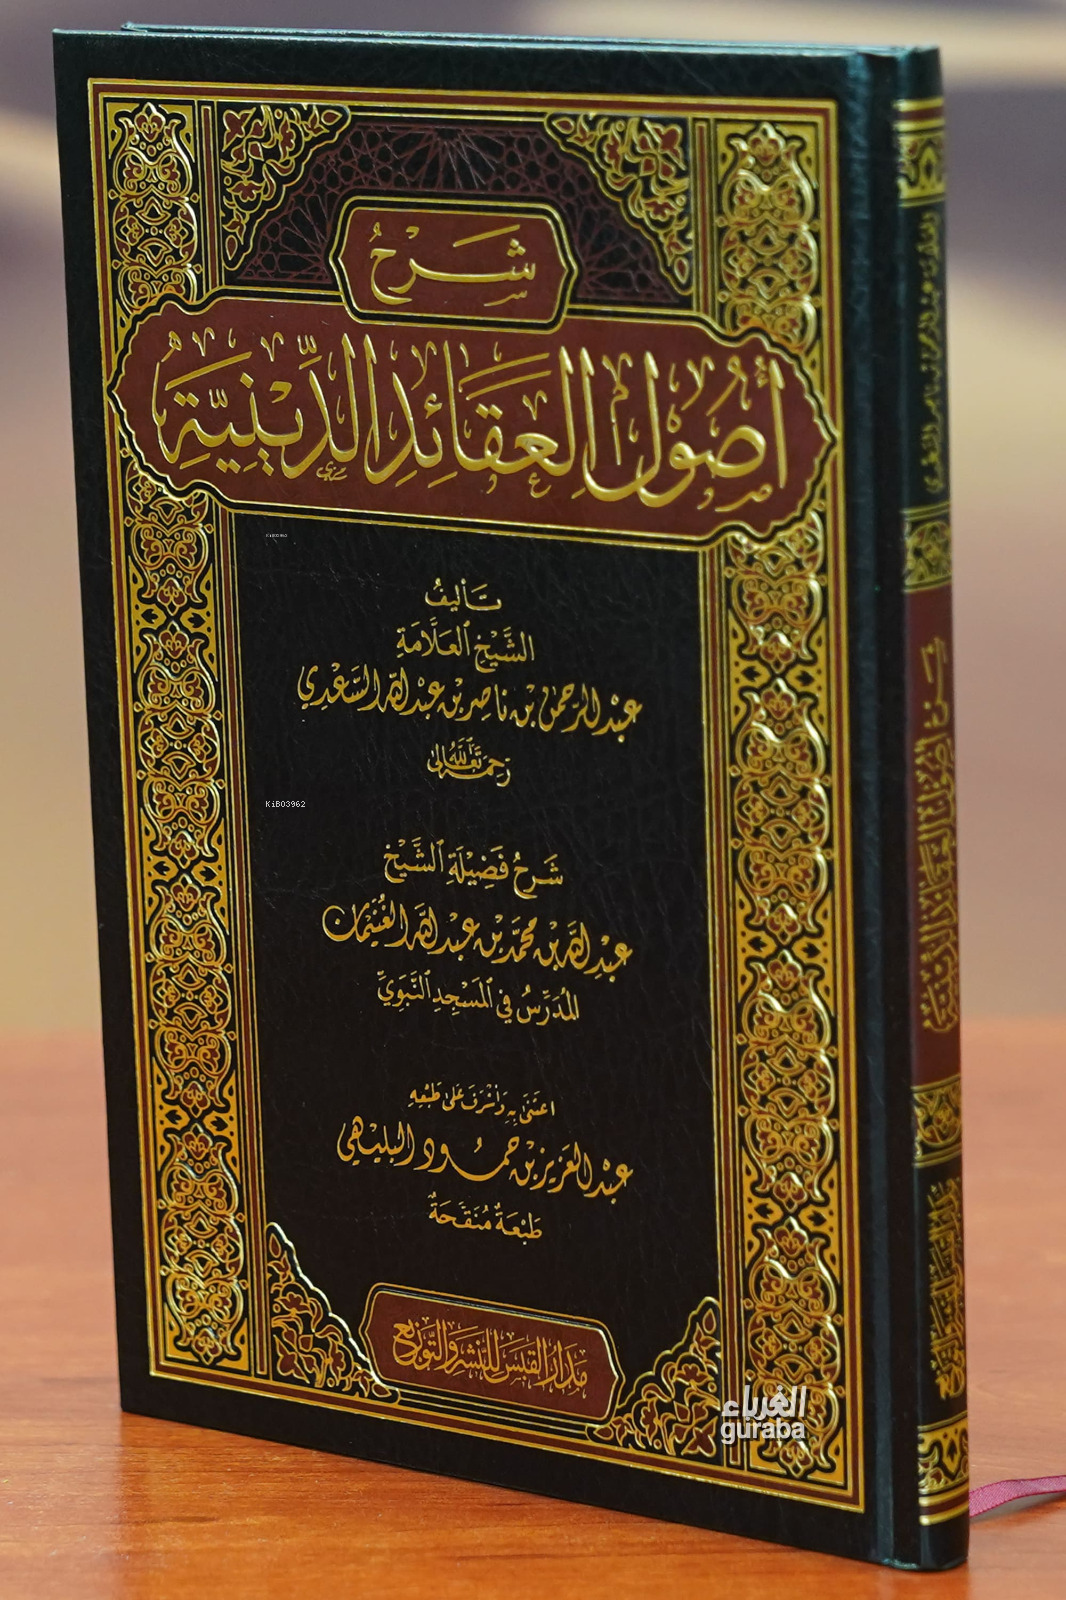 شَرْحُ
أُصُولِ العَقَائِدِ الدِّينِيَّةِ
KiB03962
تَأْلِيفُ
الشَّيْخِ العَلَّامَةِ
عَبْدِ الرَّحْمٰنِ بْنِ نَاصِرِ بْنِ عَبْدِ اللهِ السَّعْدِي
رَحِمَهُ اللَّهُ تَعَالَىٰ
KiB03962
شَرْحُ فَضِيلَةِ الشَّيْخِ
عَبْدِ اللهِ بْنِ مُحَمَّد بْنِ عَبْدِ اللهِ الغُنَيْمَان
المُدَرِّسُ فِي المَسْجِدِ النَّبَوِيِّ
اعْتَنَى بِهِ وَأَشْرَفَ عَلَى طَبْعِهِ
عَبْدُ العَزِيزِ بْنُ حَمُود البليهي
طَبْعَةٌ مُنَقَّحَةٌ
مَدَارُ القَبَسِ لِلنَّشْرِ وَالتَّوْزِيعِ
الغرباء
guraba
شرح أصول العقائد الدينية